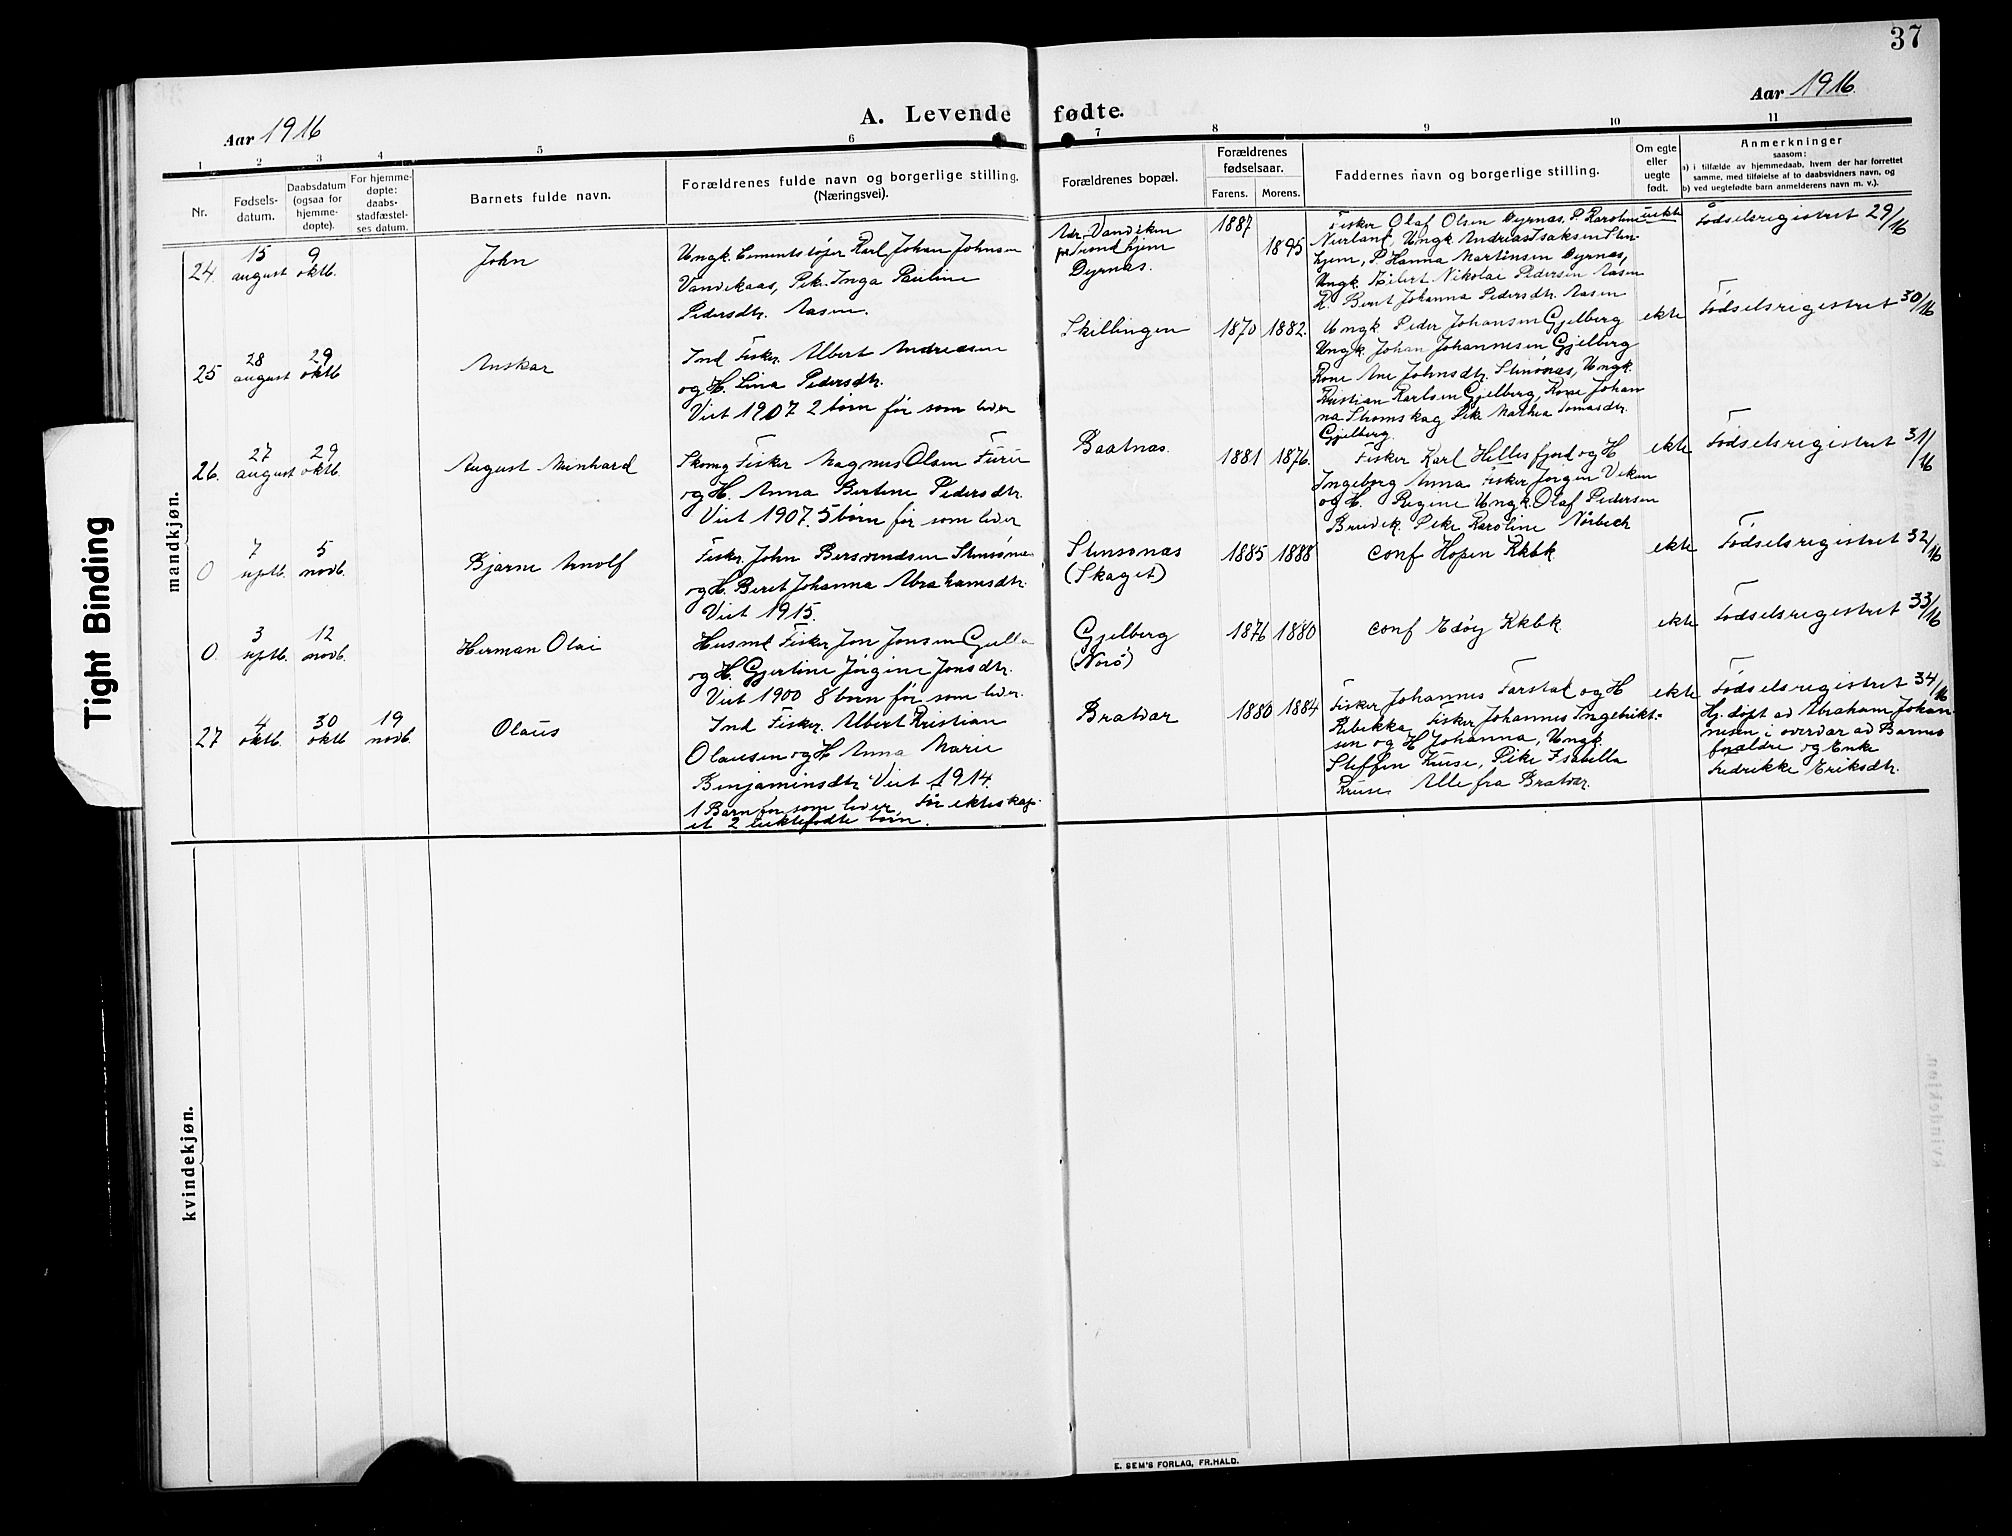 37
Aar 1916
A. Levende fødte.
Aar 1916
1 2 3 4 5 6 7 8 9 10 11
Nr.
Fødsels-
datum.
Daabsdatum
(ogsaa for
hjemme-
døpte).
For hjemme-
døpte:
daabs-
stadfæstel-
ses datum.
Barnets fulde navn.
Forældrenes fulde navn og borgerlige stilling.
(Næringsvei).
Forældrenes bopæl.
Forældrenes
fødselsaar.
Farens. Morens.
Faddernes navn og borgerlige stilling.
Om egte
eller
uegte
født.
Anmerkninger
saasom:
a) i tilfælde av hjemmedaab, hvem der har forrettet
samme, med tilføielse af to daabsvidners navn, og
b) ved uegtefødte barn anmelderens navn m. v.).
mandkjøn.
24.
15
august
9
oktb.
John
Ungk. Cementstøper Karl Johan Johnsen
Vandekaas, Pike Inga Pauline
Pedersdtr. Aasen.
Adr. Vandeken
pr Trondhjem
Dyrnæs.
1887
1895
Fisker Olaf Olsen Dyrnæs, P. Karoline
Nerland, Ungk Andreas Isaksen Sten-
hjem, P. Hanna Martinsen Dyrnæs,
Ungk. Nikolai Pedersen Aasen
P. Beret Johanna Pedersdtr. Aasen
uekte
Fødselsregistret 29/16
25
28
august
29
oktb
Anskar
Ind Fisker. Albert Andreasen
og H. Lina Pedersdtr.
Viet 1907 2 børn før som lever
Skillingen
1870 1882.
Ungk Peder Johansen Gjelberg
Ungk. Johan Johannesen Gjelberg
Kone Ane Johnsdtr. Stensønæs, Ungk.
Kristian Karlsen Gjelberg, Kone Johan
na Skomskag Pike Mathea Tomasdtr.
Gjelberg.
ekte
Fødselsregistret 30/16
26.
27
august
29
oktb
August Meinhard
Skomg Fisker Magnus Olsen Furu
og H. Anna Bertine Pedersdtr.
Viet 1907. 5 børn før som lever
Baatnæs.
1881 1876.
Fisker Karl Hillesfjord og H
Ingeborg Anna Fisker Jørgen Veken
og H. Regine Ungk. Olaf Pedersen
Brudvik Pike Karoline Nørbech
ekte
Fødselsregistret 31/16
0
7
septb.
5
novb.
Bjarne Arnolf
Fisker John Bersvendsen Stensønæs
og H. Beret Johanna Abrahamsdtr.
Viet 1915.
Stensønæs
(Skaget)
1885 1888
conf Hopen Kkbk
ekte
Fødselsregistret 32/16
0.
3
septb.
12
novb.
Herman Olai
Husmd Fisker Jon Jonsen
og H. Gjertine Jørgine Jonsdtr.
Viet 1900 8 børn før som lever.
Gjelberg
(Norø)
1876 1880
conf Edøy Kkbk.
ekte
Fødselsregistret 33/16
27
4
oktb.
30
oktb
19
novb.
Olaus
Ind Fisker. Albert Kristian
Olausen og H Anna Marie
Benjaminsdtr Viet 1914.
1 Barn før som lever, før ekteskap-
et 2 uektefødte børn.
Bratvær
1880 1884
Fisker Johannes Farstad og H
Rebikka Fisker Johannes Ingebrikt-
sen og H Johanna, Ungk
Steffen Kruse, Pike Isabella
Kruse Alle fra Bratvær.
ekte
Fødselsregistret 34/16
Hj. døpt av Abraham Johan-
nesen i overvær av Barnets
forældre og Enke
Fredrikke Eriksdtr.
kvindekjøn.
Tight Binding
E. SEM'S FORLAG, FR.HALD.